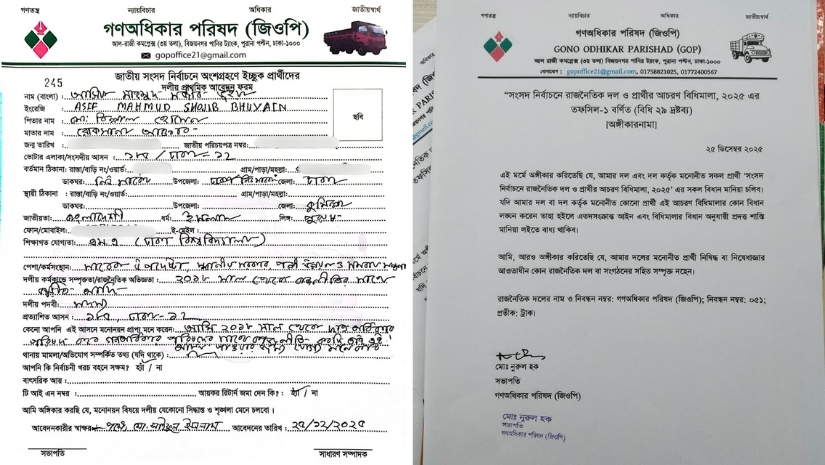 গণতন্ত্র ন্যায়বিচার অধিকার জাতীয়স্বার্থ
গণঅধিকার পরিষদ (জিওপি)
আল-রাজী কমপ্লেক্স (৩য় তলা), বিজয়নগর পানির ট্যাংক, পুরানা পল্টন, ঢাকা-১০০০
gopoffice21@gmail.com
245
জাতীয় সংসদ নির্বাচনে অংশগ্রহণে ইচ্ছুক প্রার্থীদের
দলীয় প্রাথমিক আবেদন ফরম
নাম (বাংলা)
ইংরেজি ASIF MAHMUD SHOJIB BHUYAIN
পিতার নাম মো: বিল্লাল হোসেন
মাতার নাম রোকসানা আক্তার
ছবি
জন্ম তারিখ : জাতীয় পরিচয়পত্র নম্বর:
ভোটার এলাকা/সংসদীয় আসন : ঢাকা-১০
বর্তমান ঠিকানা: রাস্তা/বাড়ি নং/ওয়ার্ড: গ্রাম/পাড়া/মহল্লা:
ডাকঘর: নিউ মার্কেট উপজেলা: জেলা: ঢাকা
স্থায়ী ঠিকানা : রাস্তা/বাড়ি নং/ওয়ার্ড: গ্রাম/পাড়া/মহল্লা:
ডাকঘর: উপজেলা: জেলা: কুমিল্লা
জাতীয়তা: বাংলাদেশী ধর্ম: ইসলাম লিঙ্গ: পুরুষ
ফোন/মোবাইল: ই-মেইল :
শিক্ষাগত যোগ্যতা: এম.এ (ঢাকা বিশ্ববিদ্যালয়)
পেশা/কর্মসংস্থান: সাবেক উপদেষ্টা স্থানীয় সরকার পল্লী উন্নয়ন ও সমবায়
দলীয় কর্মকাণ্ডে সম্পৃক্ততা/রাজনৈতিক অভিজ্ঞতা : ২০১৮ সাল থেকে রাজনীতির সাথে
দলীয় পদবী: সদস্য
প্রত্যাশিত আসন : ঢাকা-১০
কেনো আপনি এই আসনে মনোনয়ন প্রাপ্য মনে করেন: আমি ২০১৮ সাল থেকে ছাত্র অধিকার
পরিষদ
থানায় মামলা/অভিযোগ সম্পর্কিত তথ্য (যদি থাকে) :
আপনি কি নির্বাচনী খরচ বহনে সক্ষম? হ্যাঁ / না
বাৎসরিক আয় :
টি আই এন নম্বর : আয়কর রিটার্ন জমা দেন কি?: হ্যাঁ / না
আমি অঙ্গিকার করছি যে, মনোনয়ন বিষয়ে দলীয় যেকোনো সিদ্ধান্ত ও শৃঙ্খলা মেনে চলবো।
আবেদনকারীর স্বাক্ষর আবেদনের তারিখ :
সভাপতি সাধারণ সম্পাদক
গণতন্ত্র ন্যায়বিচার অধিকার জাতীয়স্বার্থ
গণঅধিকার পরিষদ (জিওপি)
GONO ODHIKAR PARISHAD (GOP)
আল রাজী কমপ্লেক্স (৩য় তলা), বিজয়নগর পানির ট্যাংক, ঢাকা-১০০০
যোগাযোগ : gopoffice21@gmail.com, 01758821025, 01772400567
"সংসদ নির্বাচনে রাজনৈতিক দল ও প্রার্থীর আচরণ বিধিমালা, ২০২৫ এর
তফসিল-১ বর্ণিত (বিধি ২৯ দ্রষ্টব্য)
[অঙ্গীকারনামা]
২৫ ডিসেম্বর ২০২৫
এই মর্মে অঙ্গীকার করিতেছি যে, আমার দল এবং দল কর্তৃক মনোনীত সকল প্রার্থী 'সংসদ
নির্বাচনে রাজনৈতিক দল ও প্রার্থীর আচরণ বিধিমালা, ২০২৫' এর সকল বিধান মানিয়া চলিব।
যদি আমার দল বা দল কর্তৃক মনোনীত কোনো প্রার্থী এই আচরণ বিধিমালার কোন বিধান
লঙ্ঘন করেন তাহা হইলে এতদসংক্রান্ত আইন এবং বিধিমালার বিধান অনুযায়ী প্রদত্ত শাস্তি
মানিয়া লইতে বাধ্য থাকিব।
আমি, আরও অঙ্গীকার করিতেছি যে, আমার দলের মনোনীত প্রার্থী নিষিদ্ধ বা নিষেধাজ্ঞার
আওতাধীন কোন রাজনৈতিক দল বা সংগঠনের সহিত সম্পৃক্ত নহেন।
রাজনৈতিক দলের নাম ও নিবন্ধন নম্বর: গণঅধিকার পরিষদ (জিওপি); নিবন্ধন নম্বর: ০৫১;
প্রতীক: ট্রাক।
মোঃ নুরুল হক
সভাপতি
গণঅধিকার পরিষদ (জিওপি)
মোঃ নুরুল হক
সভাপতি
গণঅধিকার পরিষদ (জিওপি)